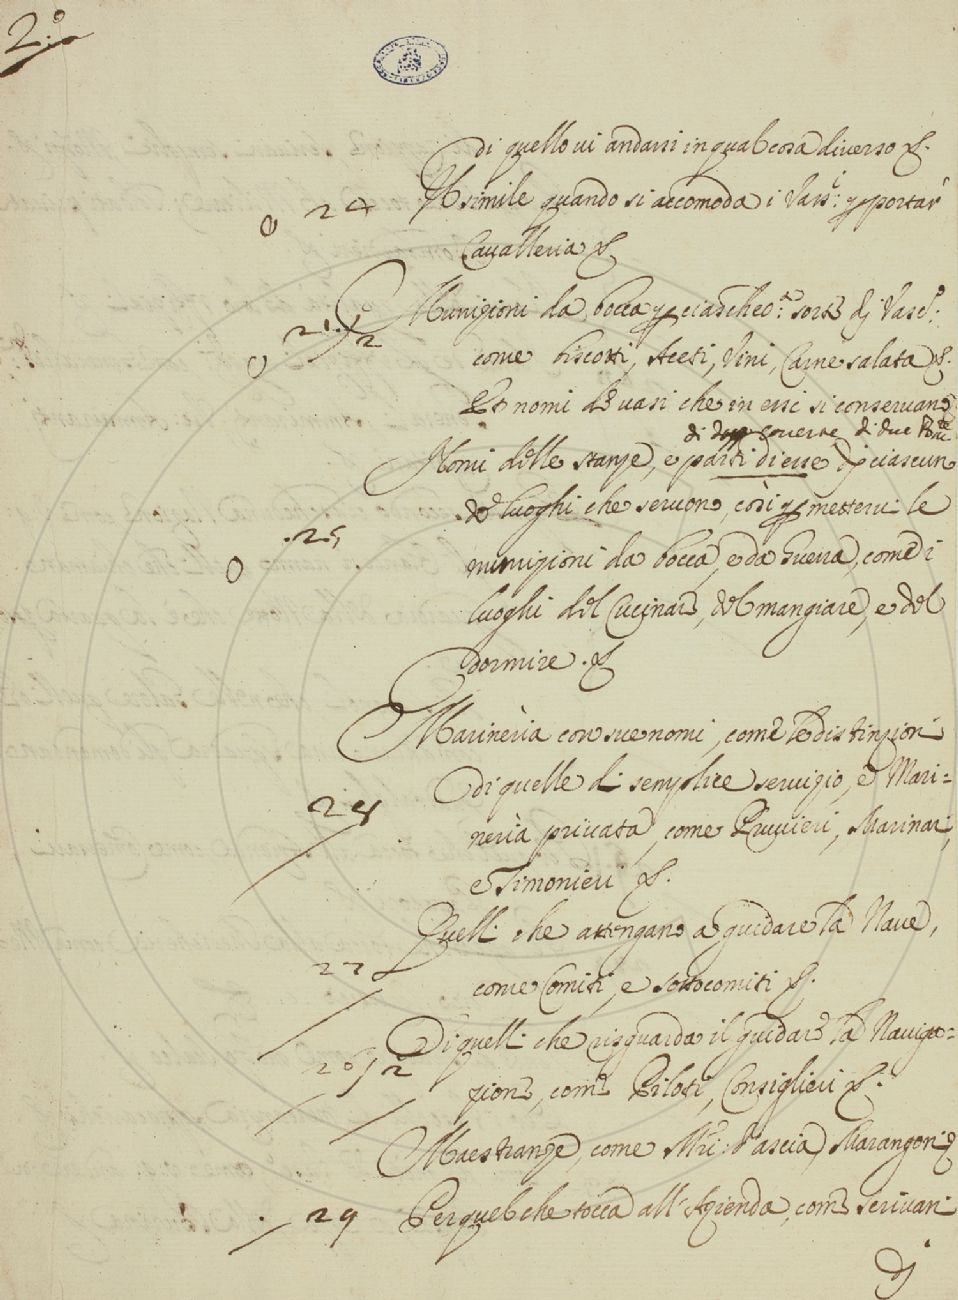 2.o
di quello vi andarsi in qual cosa diverso &.
24 Il simile quando si accomoda i Vass.i p portar
Cavalleria &.
Munizioni da bocca p ciasched.a sorte di Vasc.i
come biscotti, Aceti, Vini, Carne salata &.
Et nomi de vasi che in essi si conservano
di governe di due
Nomi delle stanze, e parti di esse di ciascun
de luoghi che servono, così p mettervi le
25
munizioni da bocca, e da Guerra, come di
luoghi del Cucinare, del mangiare, e del
dormire. &
Marineria con sue nomi, come le distinzioni
di quelle di semplice servizio, e Mari=
28
neria privata, come Pruvieri, Marinari,
e Timonieri &.
Quelli che attengano a guidare la Nave,
27
come Comiti, e sottocomiti &.
Di quelli che risguarda il guidare la Naviga=
26/2
zione, come Piloti, Consiglieri &.
Maestranze, come Mri d'ascia, Marangoni &
29 Per quel che tocca all'Azienda, come scrivani
di